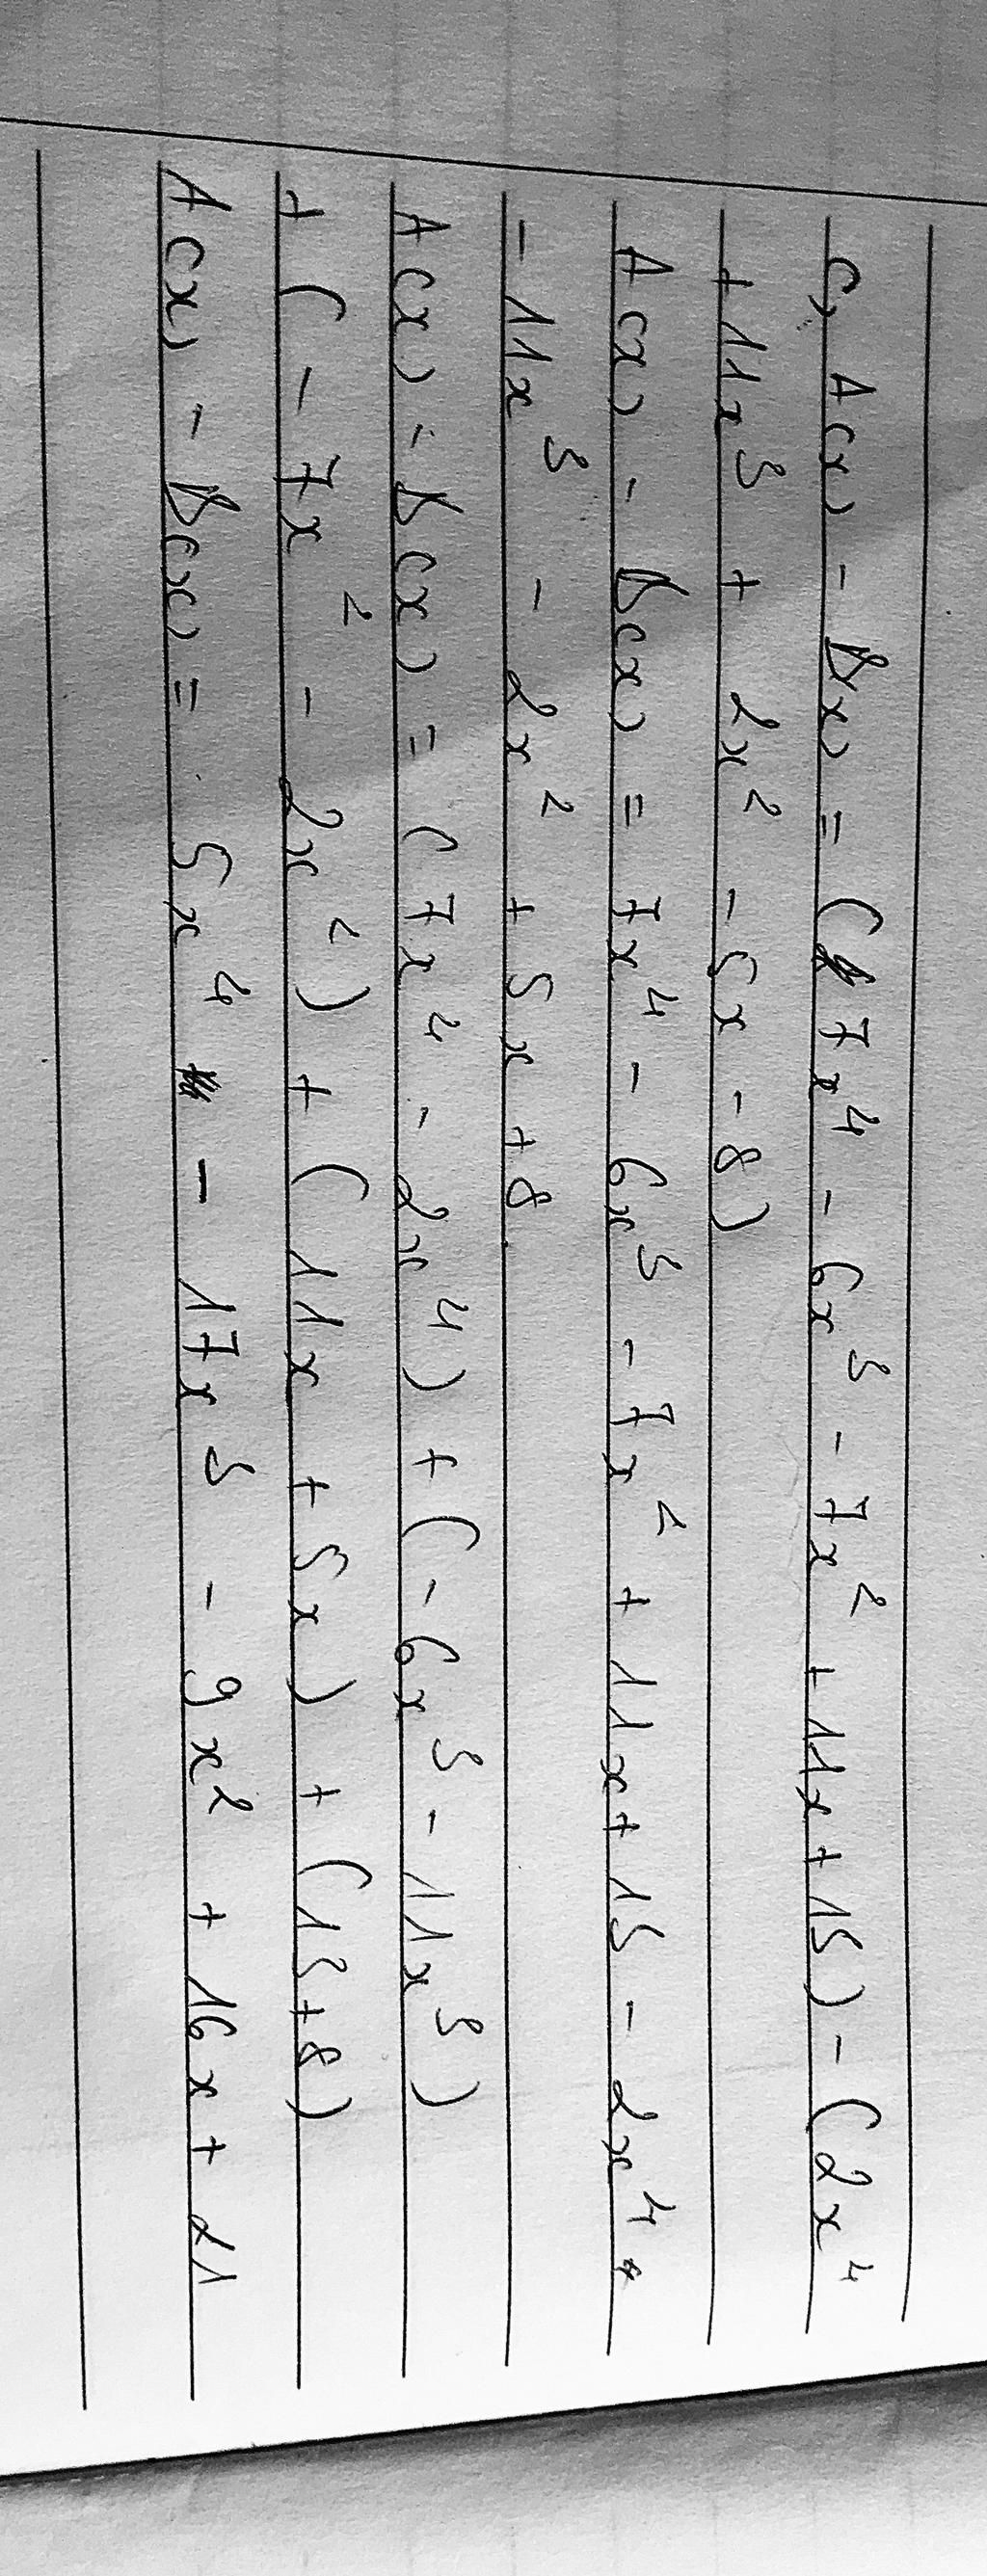 c, A(x) - B(x) = (7x⁴ - 6x³ - 7x² + 11x + 15) - (2x⁴
+ 11x³ + 2x² - 5x - 8)
A(x) - B(x) = 7x⁴ - 6x³ - 7x² + 11x + 15 - 2x⁴
- 11x³ - 2x² + 5x + 8
A(x) - B(x) = (7x⁴ - 2x⁴) + (-6x³ - 11x³)
+ (-7x² - 2x²) + (11x + 5x) + (13 + 8)
A(x) - B(x) = 5x⁴ - 17x³ - 9x² + 16x + 21